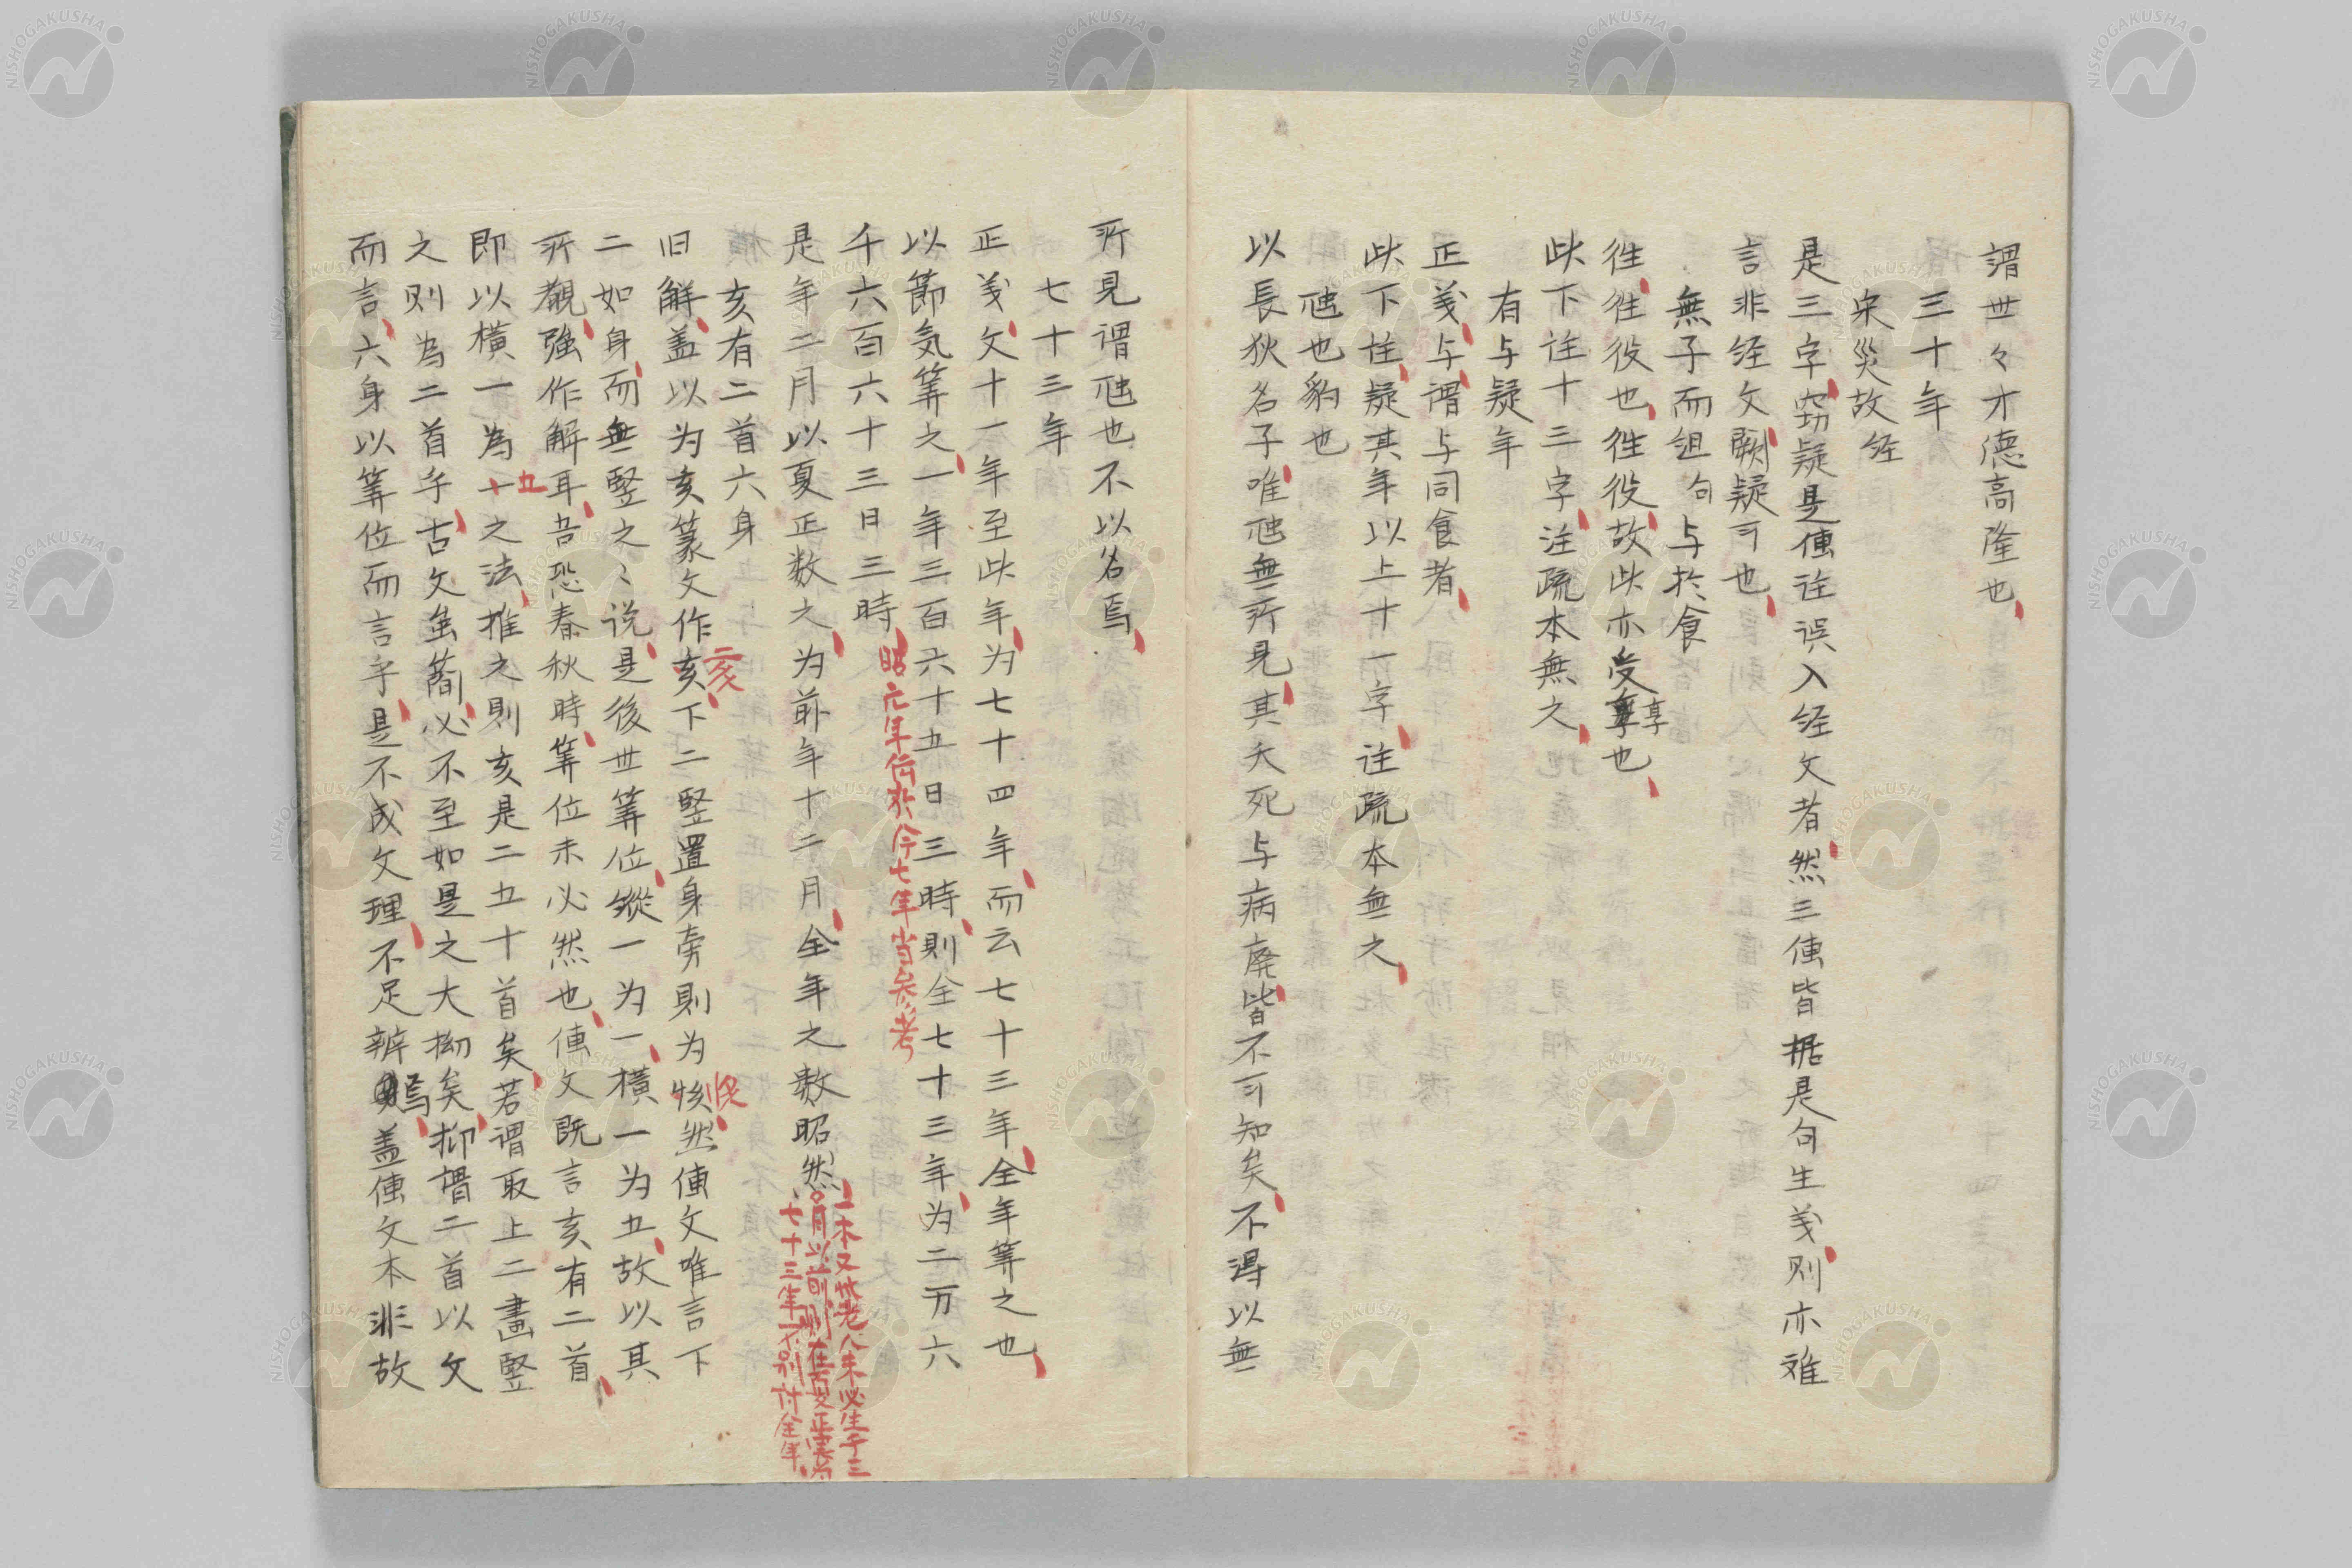 謂世々才德高隆也
三十年
宋災故経
是三字窃疑是傳注誤入経文者然三傳皆据是句生義則亦难
言非経文闕疑可也
無子而徃句与於食
徃徃役也徃役故此亦受享也
此下注十三字注疏本無之
有与疑年
正義与謂与同食者
此下注疑其年以上十一字注疏本無之
虺也豹也
以長狄名子唯虺無所見其夭死与病廃皆不可知矣不得以無
所見谓虺也不以名焉
七十三年
正義文十一年至此年为七十四年而云七十三年全年筭之也
以節気筭之一年三百六十五日三時則全七十三年为二万六
千六百六十三日三時
昭元年伝於今七年当参考
是年二月以夏正数之为前年十二月全年之数昭然
一本又此老人未必生于三
月以前則在夏正实为
七十三年不別計全年
亥有二首六身
旧解盖以为亥篆文作亥下二竪置身旁則为㤥然傳文唯言下
二如身而無竪之々说是後世筭位縱一为一橫一为五故以其
所覩強作解耳吾恐春秋時筭位未必然也傳文既言亥有二首
即以橫一為五之法推之則亥是二五十首矣若谓取上二畫竪
之则為二首乎古文虽簡必不至如是之大拗矣抑謂二首以文
而言六身以筭位而言乎是不成文理不足辨焉盖傳文本非故